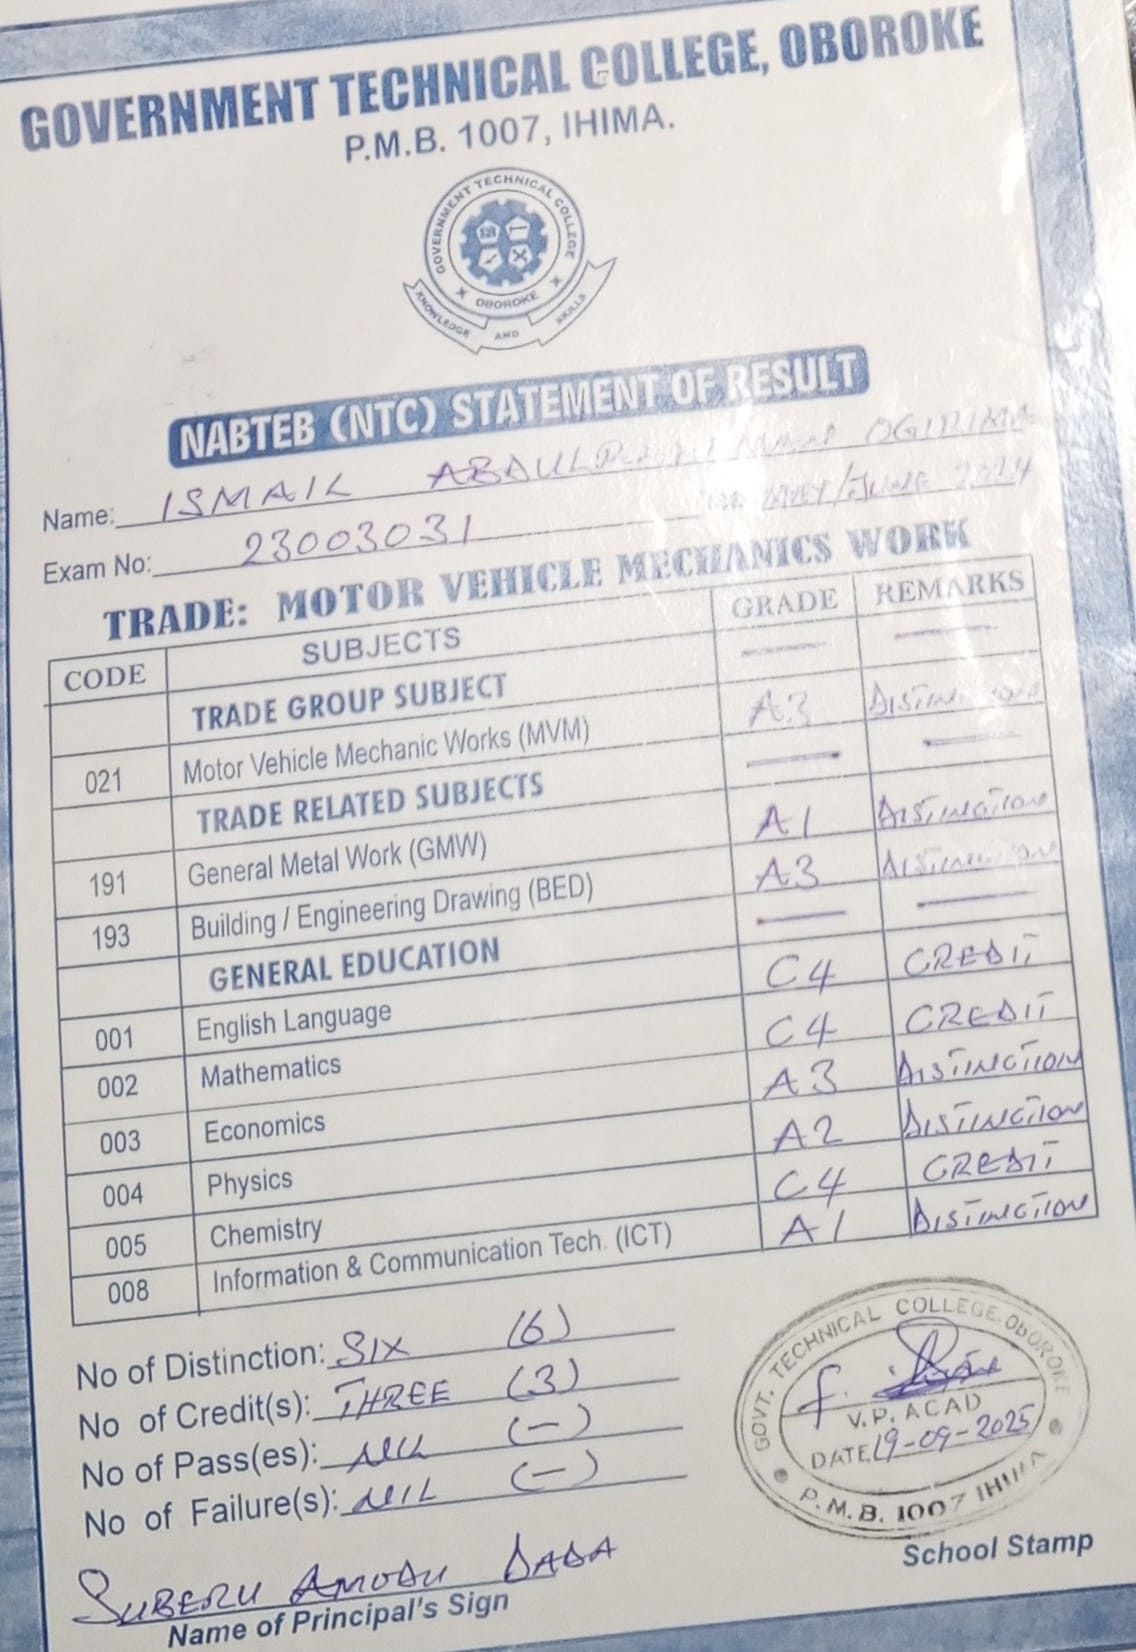 GOVERNMENT TECHNICAL COLLEGE, OBOROKE
P.M.B. 1007, IHIMA.
GOVERNMENT TECHNICAL COLLEGE
OBOROKE
KNOWLEDGE AND SKILLS
NABTEB (NTC) STATEMENT OF RESULT
Name: ISMAIL OGIRIMA
Exam No: 23003031 MAY/JUNE 2024
TRADE: MOTOR VEHICLE MECHANICS WORK
CODE SUBJECTS GRADE REMARKS
TRADE GROUP SUBJECT — —
021 Motor Vehicle Mechanic Works (MVM) A3 DISTINCTION
TRADE RELATED SUBJECTS — —
191 General Metal Work (GMW) A1 DISTINCTION
193 Building / Engineering Drawing (BED) A3 DISTINCTION
GENERAL EDUCATION — —
001 English Language C4 CREDIT
002 Mathematics C4 CREDIT
003 Economics A3 DISTINCTION
004 Physics A2 DISTINCTION
005 Chemistry C4 CREDIT
008 Information & Communication Tech. (ICT) A1 DISTINCTION
No of Distinction: SIX (6)
No of Credit(s): THREE (3)
No of Pass(es): NIL (-)
No of Failure(s): NIL (-)
GOVT. TECHNICAL COLLEGE. OBOROKE
f.
V.P. ACAD
DATE 19-09-2025
P.M.B. 1007 IHIMA
School Stamp
SUBERU AMODU DADA
Name of Principal's Sign